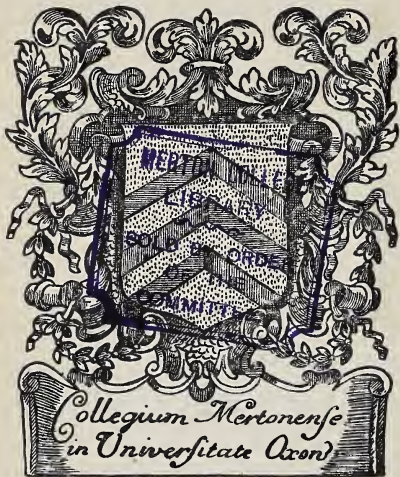 MERTON COLLEGE
LIBRARY
SOLD BY ORDER
OF THE
COMMITTEE
Collegium Mertonenſe
in Univerſitate Oxon